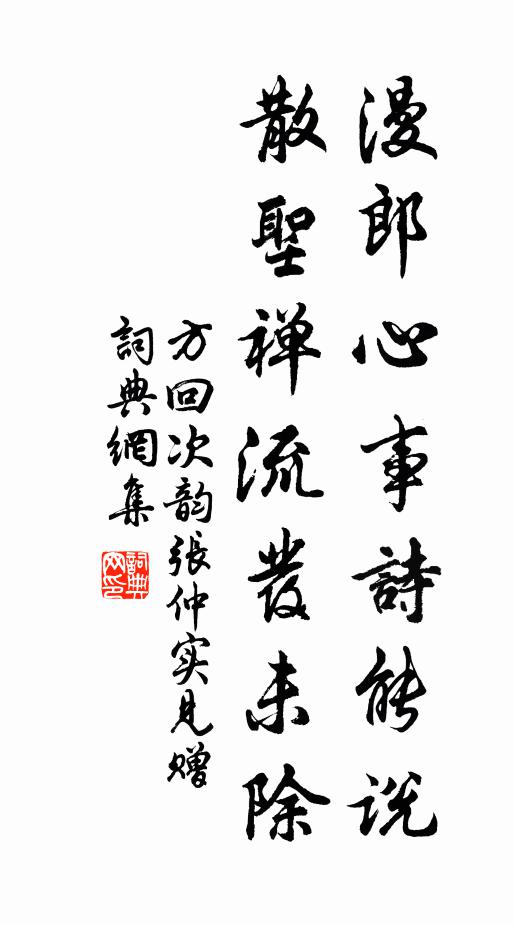 漫郎心事詩能説
散聖禅流髮未除
方回次韵張仲实見赠
詞典網集
詞典網印